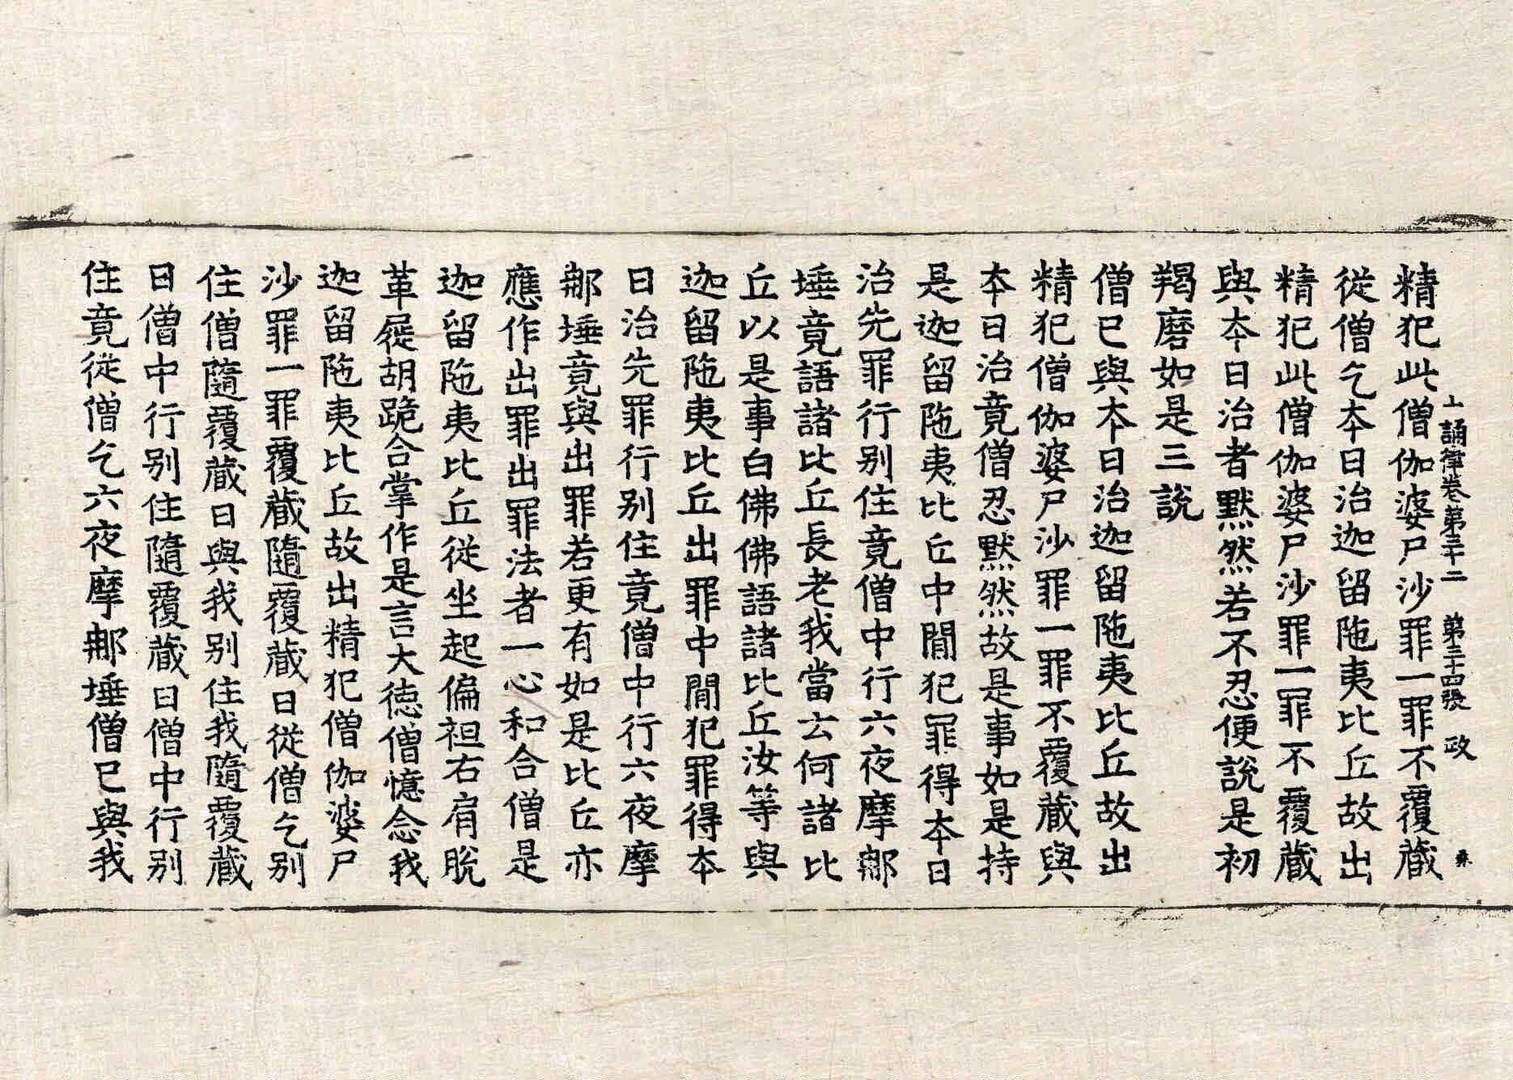 十誦律卷第三十二　第三十四張　政
精犯此僧伽婆尸沙罪一罪不覆藏
從僧乞夲日治迦留陁夷比丘故出
精犯此僧伽婆尸沙罪一罪不覆藏
與夲日治者默然若不忍便說是初
羯磨如是三說
僧已與夲日治迦留陁夷比丘故出
精犯僧伽婆尸沙罪一罪不覆藏與
夲日治竟僧忍默然故是事如是持
是迦留陁夷比丘中閒犯罪得夲日
治先罪行別住竟僧中行六夜摩那
埵竟語諸比丘長老我當云何諸比
丘以是事白佛佛語諸比丘汝等與
迦留陁夷比丘出罪中閒犯罪得夲
日治先罪行別住竟僧中行六夜摩
那埵竟與出罪若更有如是比丘亦
應作出罪出罪法者一心和合僧是
迦留陁夷比丘從坐起偏袒右肩脫
革屣胡跪合掌作是言大德僧憶念我
迦留陁夷比丘故出精犯僧伽婆尸
沙罪一罪覆藏隨覆藏日從僧乞別
住僧隨覆藏日與我別住我隨覆藏
日僧中行別住隨覆藏日僧中行別
住竟從僧乞六夜摩那埵僧已與我